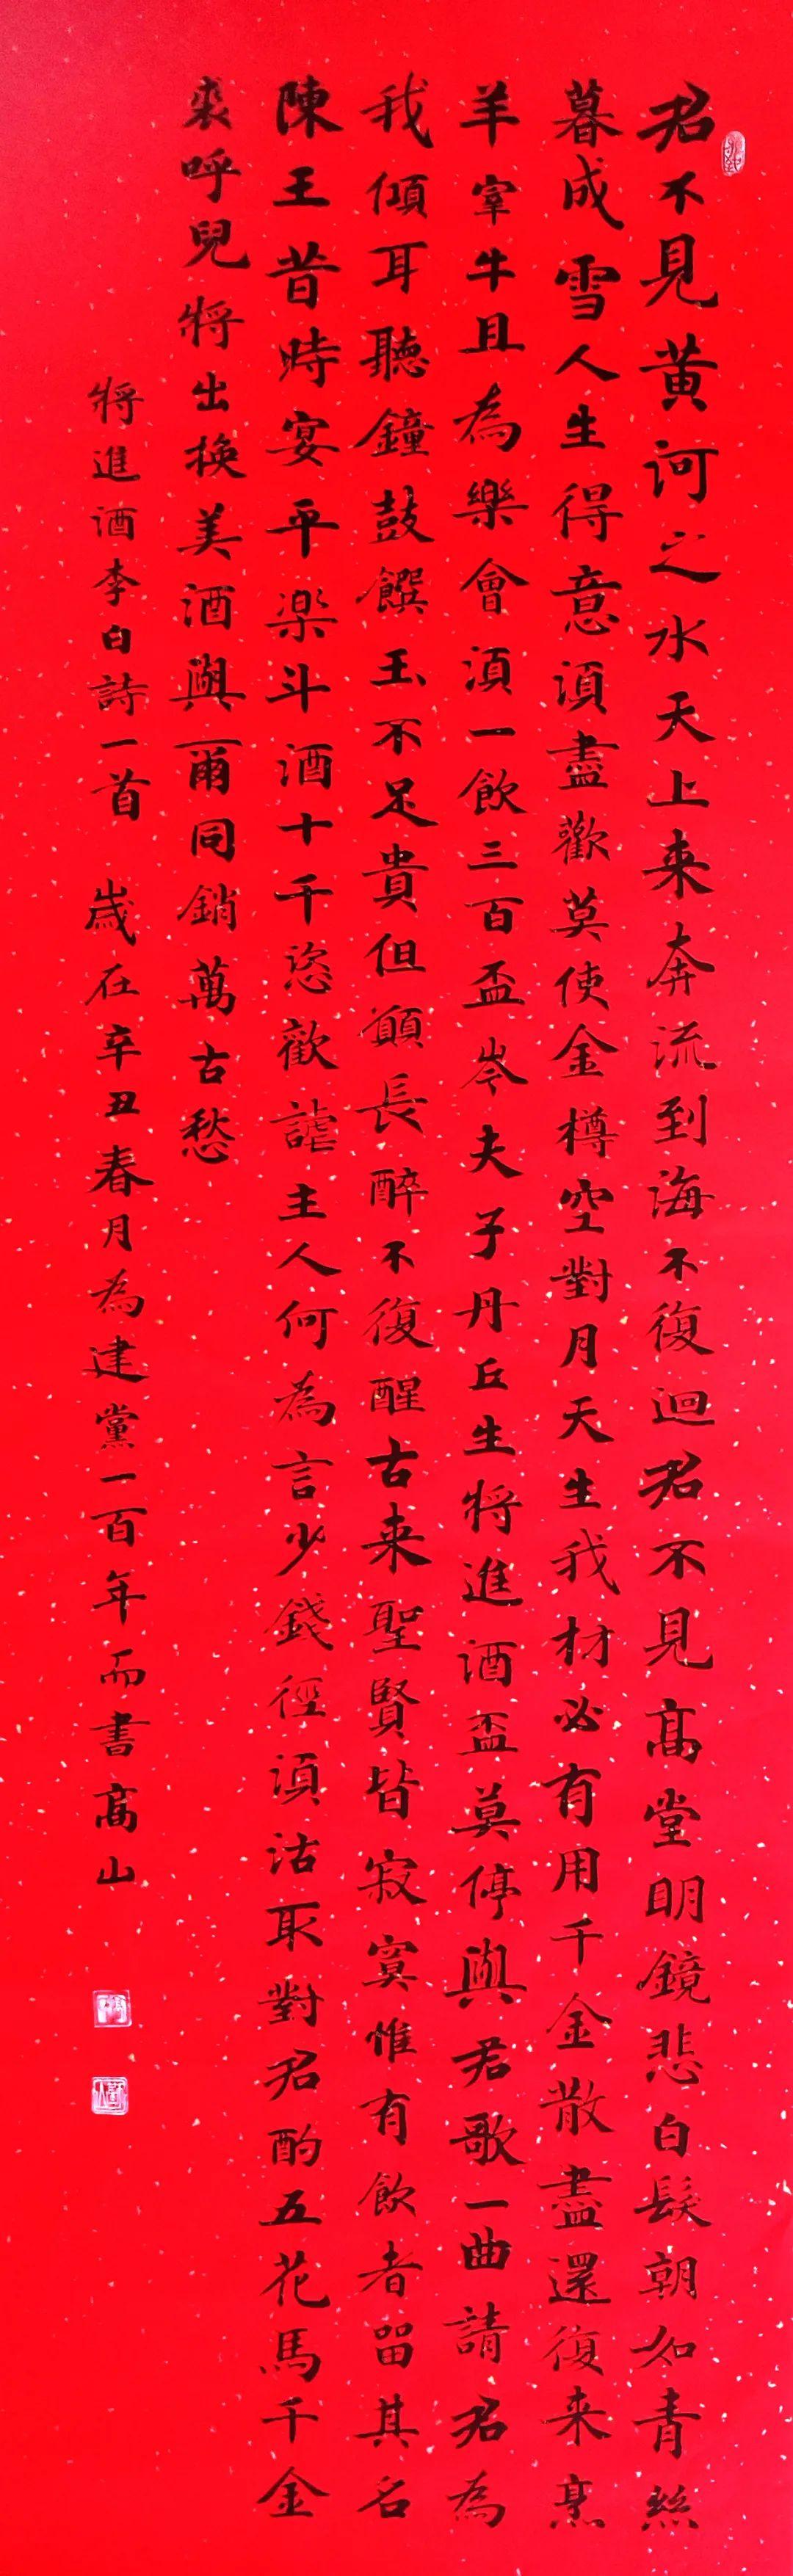 君不見黄河之水天上来奔流到海不復迴君不見高堂明鏡悲白髮朝如青絲
暮成雪人生得意須盡歡莫使金樽空對月天生我材必有用千金散盡還復来烹
羊宰牛且為樂會須一飲三百盃岑夫子丹丘生将進酒盃莫停與君歌一曲請君為
我傾耳聽鐘鼓饌玉不足貴但願長醉不復醒古来聖賢皆寂寞惟有飲者留其名
陳王昔時宴平楽斗酒十千恣歡謔主人何為言少錢徑須沽取對君酌五花馬千金
裘呼兒將出換美酒與爾同銷萬古愁
將進酒李白詩一首 歲在辛丑春月為建黨一百年而書高山